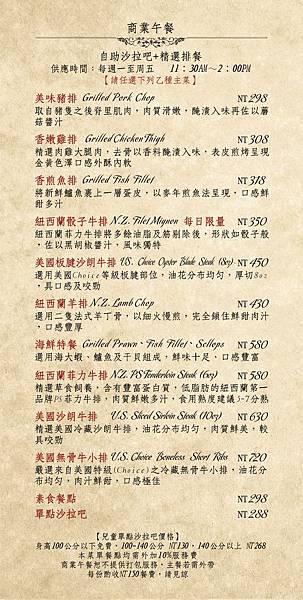 商業午餐
自助沙拉吧+精選排餐
供應時間：每週一至周五 11：30AM～2：00PM
【請任選下列乙種主菜】
美味豬排 Grilled Pork Chop NT 298
取自豬隻之後脊里肌肉，肉質滑嫩，醃漬入味再佐以蘑
菇醬汁
香嫩雞排 Grilled Chicken Thigh NT 308
精選肉雞大腿肉，去骨以香料醃漬入味，表皮煎烤呈現
金黃色澤口感外酥內軟
香煎魚排 Grilled Fish Fillet NT 318
將新鮮鱸魚裹上一層蛋皮，以麥年煎魚法呈現，口感鮮
甜多汁
紐西蘭骰子牛排 N.Z. Filet Mignon 每日限量 NT 350
紐西蘭菲力牛排將多餘油脂及筋剔除後，形狀如骰子般
，佐以黑胡椒醬汁，風味獨特
美國板腱沙朗牛排 U.S. Choice Oyster Blade Steak (8oz) NT 450
選用美國Choice等級板腱部位，油花分布均勻，厚切8oz
，具口感及咬勁
紐西蘭羊排 N.Z. Lamb Chop NT 430
選用二隻法式羊丁骨，以細火慢煎，完全鎖住鮮甜肉汁
，口感豐厚
海鮮特餐 Grilled Prawn、Fish Fillet、Scllops NT 580
選用海大蝦、鱸魚及干貝組成，鮮味十足，口感豐富
紐西蘭菲力牛排 N.Z. PS Tenderloin Steak (6oz) NT 580
精選草食飼養，含有豐富蛋白質，低脂肪的紐西蘭第一
品牌PS菲力牛排，肉質鮮嫩多汁，食用熟度建議5-7分熟
美國沙朗牛排 U.S. Sliced Sirloin Steak (10oz) NT 630
精選美國冷藏沙朗牛排，油花分布均勻，肉質鮮美，較
具咬勁
美國無骨牛小排 U.S. Choice Boneless Short Ribs NT 720
嚴選來自美國特級(Choice)之冷藏無骨牛小排，油花分
布均勻，肉汁鮮甜，口感極佳
素食餐點 NT 298
單點沙拉吧 NT 288
【兒童單點沙拉吧價格】
身高100公分以下免費，100-140公分 NT130，140公分以上 NT268
本菜單餐點均需外加10%服務費
商業午餐恕不提供打包服務，主餐若需外帶
每份酌收NT150餐費，請見諒